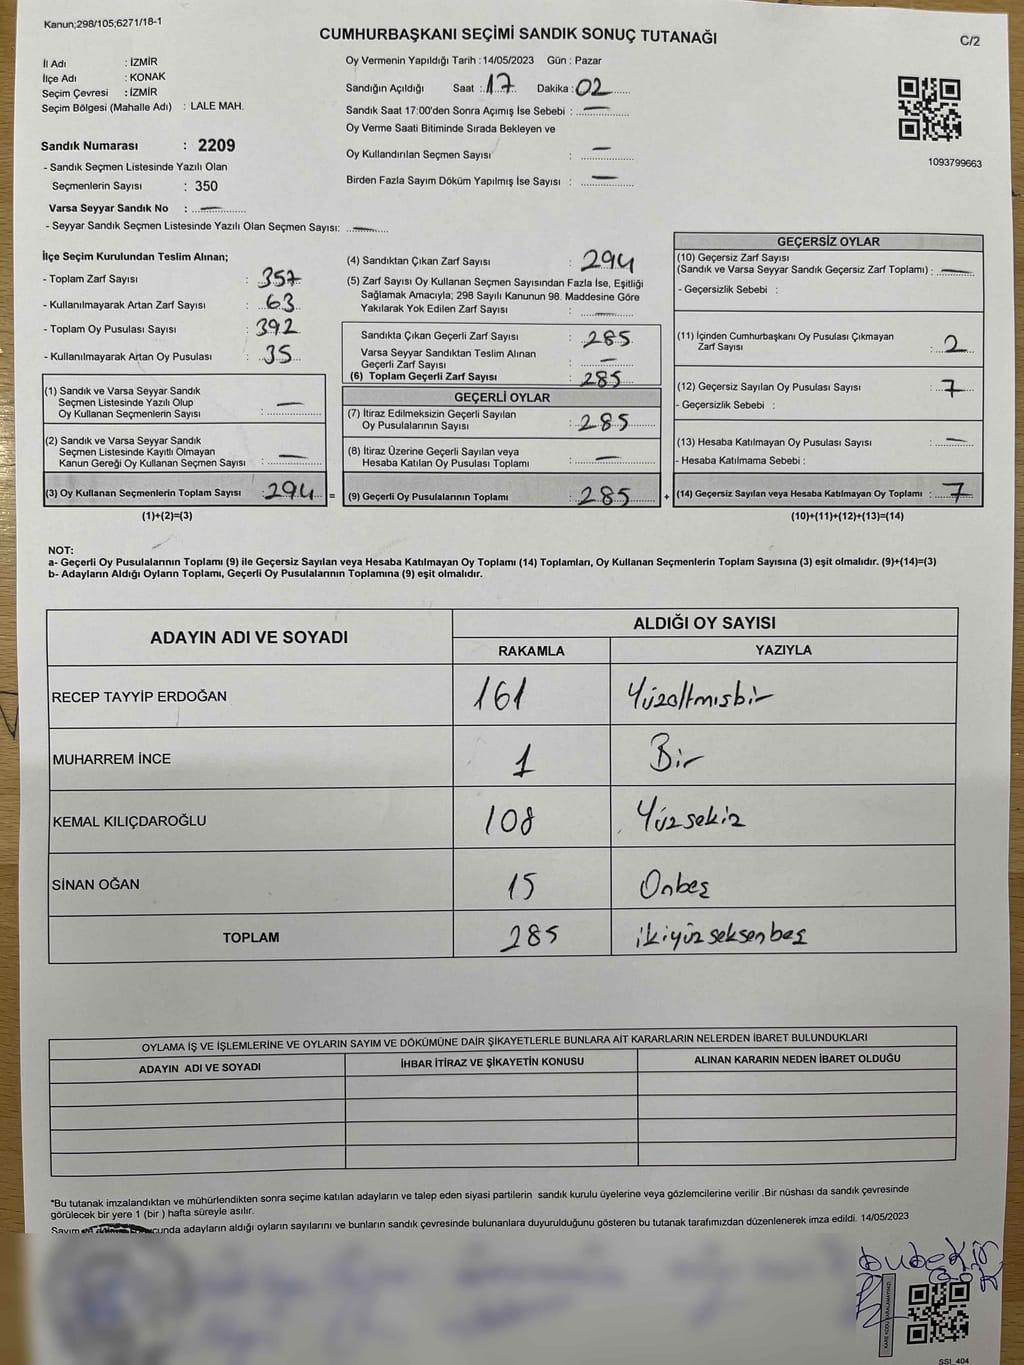 Kanun;298/105;6271/18-1
CUMHURBAŞKANI SEÇİMİ SANDIK SONUÇ TUTANAĞI
C/2
İl Adı : İZMİR
İlçe Adı : KONAK
Seçim Çevresi : İZMİR
Seçim Bölgesi (Mahalle Adı) : LALE MAH.
Sandık Numarası : 2209
- Sandık Seçmen Listesinde Yazılı Olan
Seçmenlerin Sayısı : 350
Varsa Seyyar Sandık No : —
- Seyyar Sandık Seçmen Listesinde Yazılı Olan Seçmen Sayısı: —
Oy Vermenin Yapıldığı Tarih : 14/05/2023 Gün : Pazar
Sandığın Açıldığı Saat : 17 Dakika : 02
Sandık Saat 17:00'den Sonra Açımış İse Sebebi : —
Oy Verme Saati Bitiminde Sırada Bekleyen ve
Oy Kullandırılan Seçmen Sayısı : —
Birden Fazla Sayım Döküm Yapılmış İse Sayısı : —
1093799663
İlçe Seçim Kurulundan Teslim Alınan;
- Toplam Zarf Sayısı : 357
- Kullanılmayarak Artan Zarf Sayısı : 63
- Toplam Oy Pusulası Sayısı : 392
- Kullanılmayarak Artan Oy Pusulası : 35
(1) Sandık ve Varsa Seyyar Sandık
Seçmen Listesinde Yazılı Olup
Oy Kullanan Seçmenlerin Sayısı : —
(2) Sandık ve Varsa Seyyar Sandık
Seçmen Listesinde Kayıtlı Olmayan
Kanun Gereği Oy Kullanan Seçmen Sayısı : —
(3) Oy Kullanan Seçmenlerin Toplam Sayısı : 294 =
(1)+(2)=(3)
(4) Sandıktan Çıkan Zarf Sayısı : 294
(5) Zarf Sayısı Oy Kullanan Seçmen Sayısından Fazla İse, Eşitliği
Sağlamak Amacıyla; 298 Sayılı Kanunun 98. Maddesine Göre
Yakılarak Yok Edilen Zarf Sayısı : —
Sandıkta Çıkan Geçerli Zarf Sayısı : 285
Varsa Seyyar Sandıktan Teslim Alınan
Geçerli Zarf Sayısı : —
(6) Toplam Geçerli Zarf Sayısı : 285
GEÇERLİ OYLAR
(7) İtiraz Edilmeksizin Geçerli Sayılan
Oy Pusulalarının Sayısı : 285
(8) İtiraz Üzerine Geçerli Sayılan veya
Hesaba Katılan Oy Pusulası Toplamı : —
(9) Geçerli Oy Pusulalarının Toplamı : 285 +
GEÇERSİZ OYLAR
(10) Geçersiz Zarf Sayısı
(Sandık ve Varsa Seyyar Sandık Geçersiz Zarf Toplamı) : —
- Geçersizlik Sebebi :
(11) İçinden Cumhurbaşkanı Oy Pusulası Çıkmayan
Zarf Sayısı : 2
(12) Geçersiz Sayılan Oy Pusulası Sayısı : 7
- Geçersizlik Sebebi :
(13) Hesaba Katılmayan Oy Pusulası Sayısı : —
- Hesaba Katılmama Sebebi :
(14) Geçersiz Sayılan veya Hesaba Katılmayan Oy Toplamı : 7
(10)+(11)+(12)+(13)=(14)
NOT:
a- Geçerli Oy Pusulalarının Toplamı (9) ile Geçersiz Sayılan veya Hesaba Katılmayan Oy Toplamı (14) Toplamları, Oy Kullanan Seçmenlerin Toplam Sayısına (3) eşit olmalıdır. (9)+(14)=(3)
b- Adayların Aldığı Oyların Toplamı, Geçerli Oy Pusulalarının Toplamına (9) eşit olmalıdır.
ADAYIN ADI VE SOYADI ALDIĞI OY SAYISI
RAKAMLA YAZIYLA
RECEP TAYYİP ERDOĞAN 161 Yüzaltmışbir
MUHARREM İNCE 1 Bir
KEMAL KILIÇDAROĞLU 108 Yüzsekiz
SİNAN OĞAN 15 Onbeş
TOPLAM 285 ikiyüzseksenbeş
OYLAMA İŞ VE İŞLEMLERİNE VE OYLARIN SAYIM VE DÖKÜMÜNE DAİR ŞİKAYETLERLE BUNLARA AİT KARARLARIN NELERDEN İBARET BULUNDUKLARI
ADAYIN ADI VE SOYADI İHBAR İTİRAZ VE ŞİKAYETİN KONUSU ALINAN KARARIN NEDEN İBARET OLDUĞU
*Bu tutanak imzalandıktan ve mühürlendikten sonra seçime katılan adayların ve talep eden siyasi partilerin sandık kurulu üyelerine veya gözlemcilerine verilir .Bir nüshası da sandık çevresinde
görülecek bir yere 1 (bir ) hafta süreyle asılır.
Sayım adayların aldığı oyların sayılarını ve bunların sandık çevresinde bulunanlara duyurulduğunu gösteren bu tutanak tarafımızdan düzenlenerek imza edildi. 14/05/2023
SSI_404